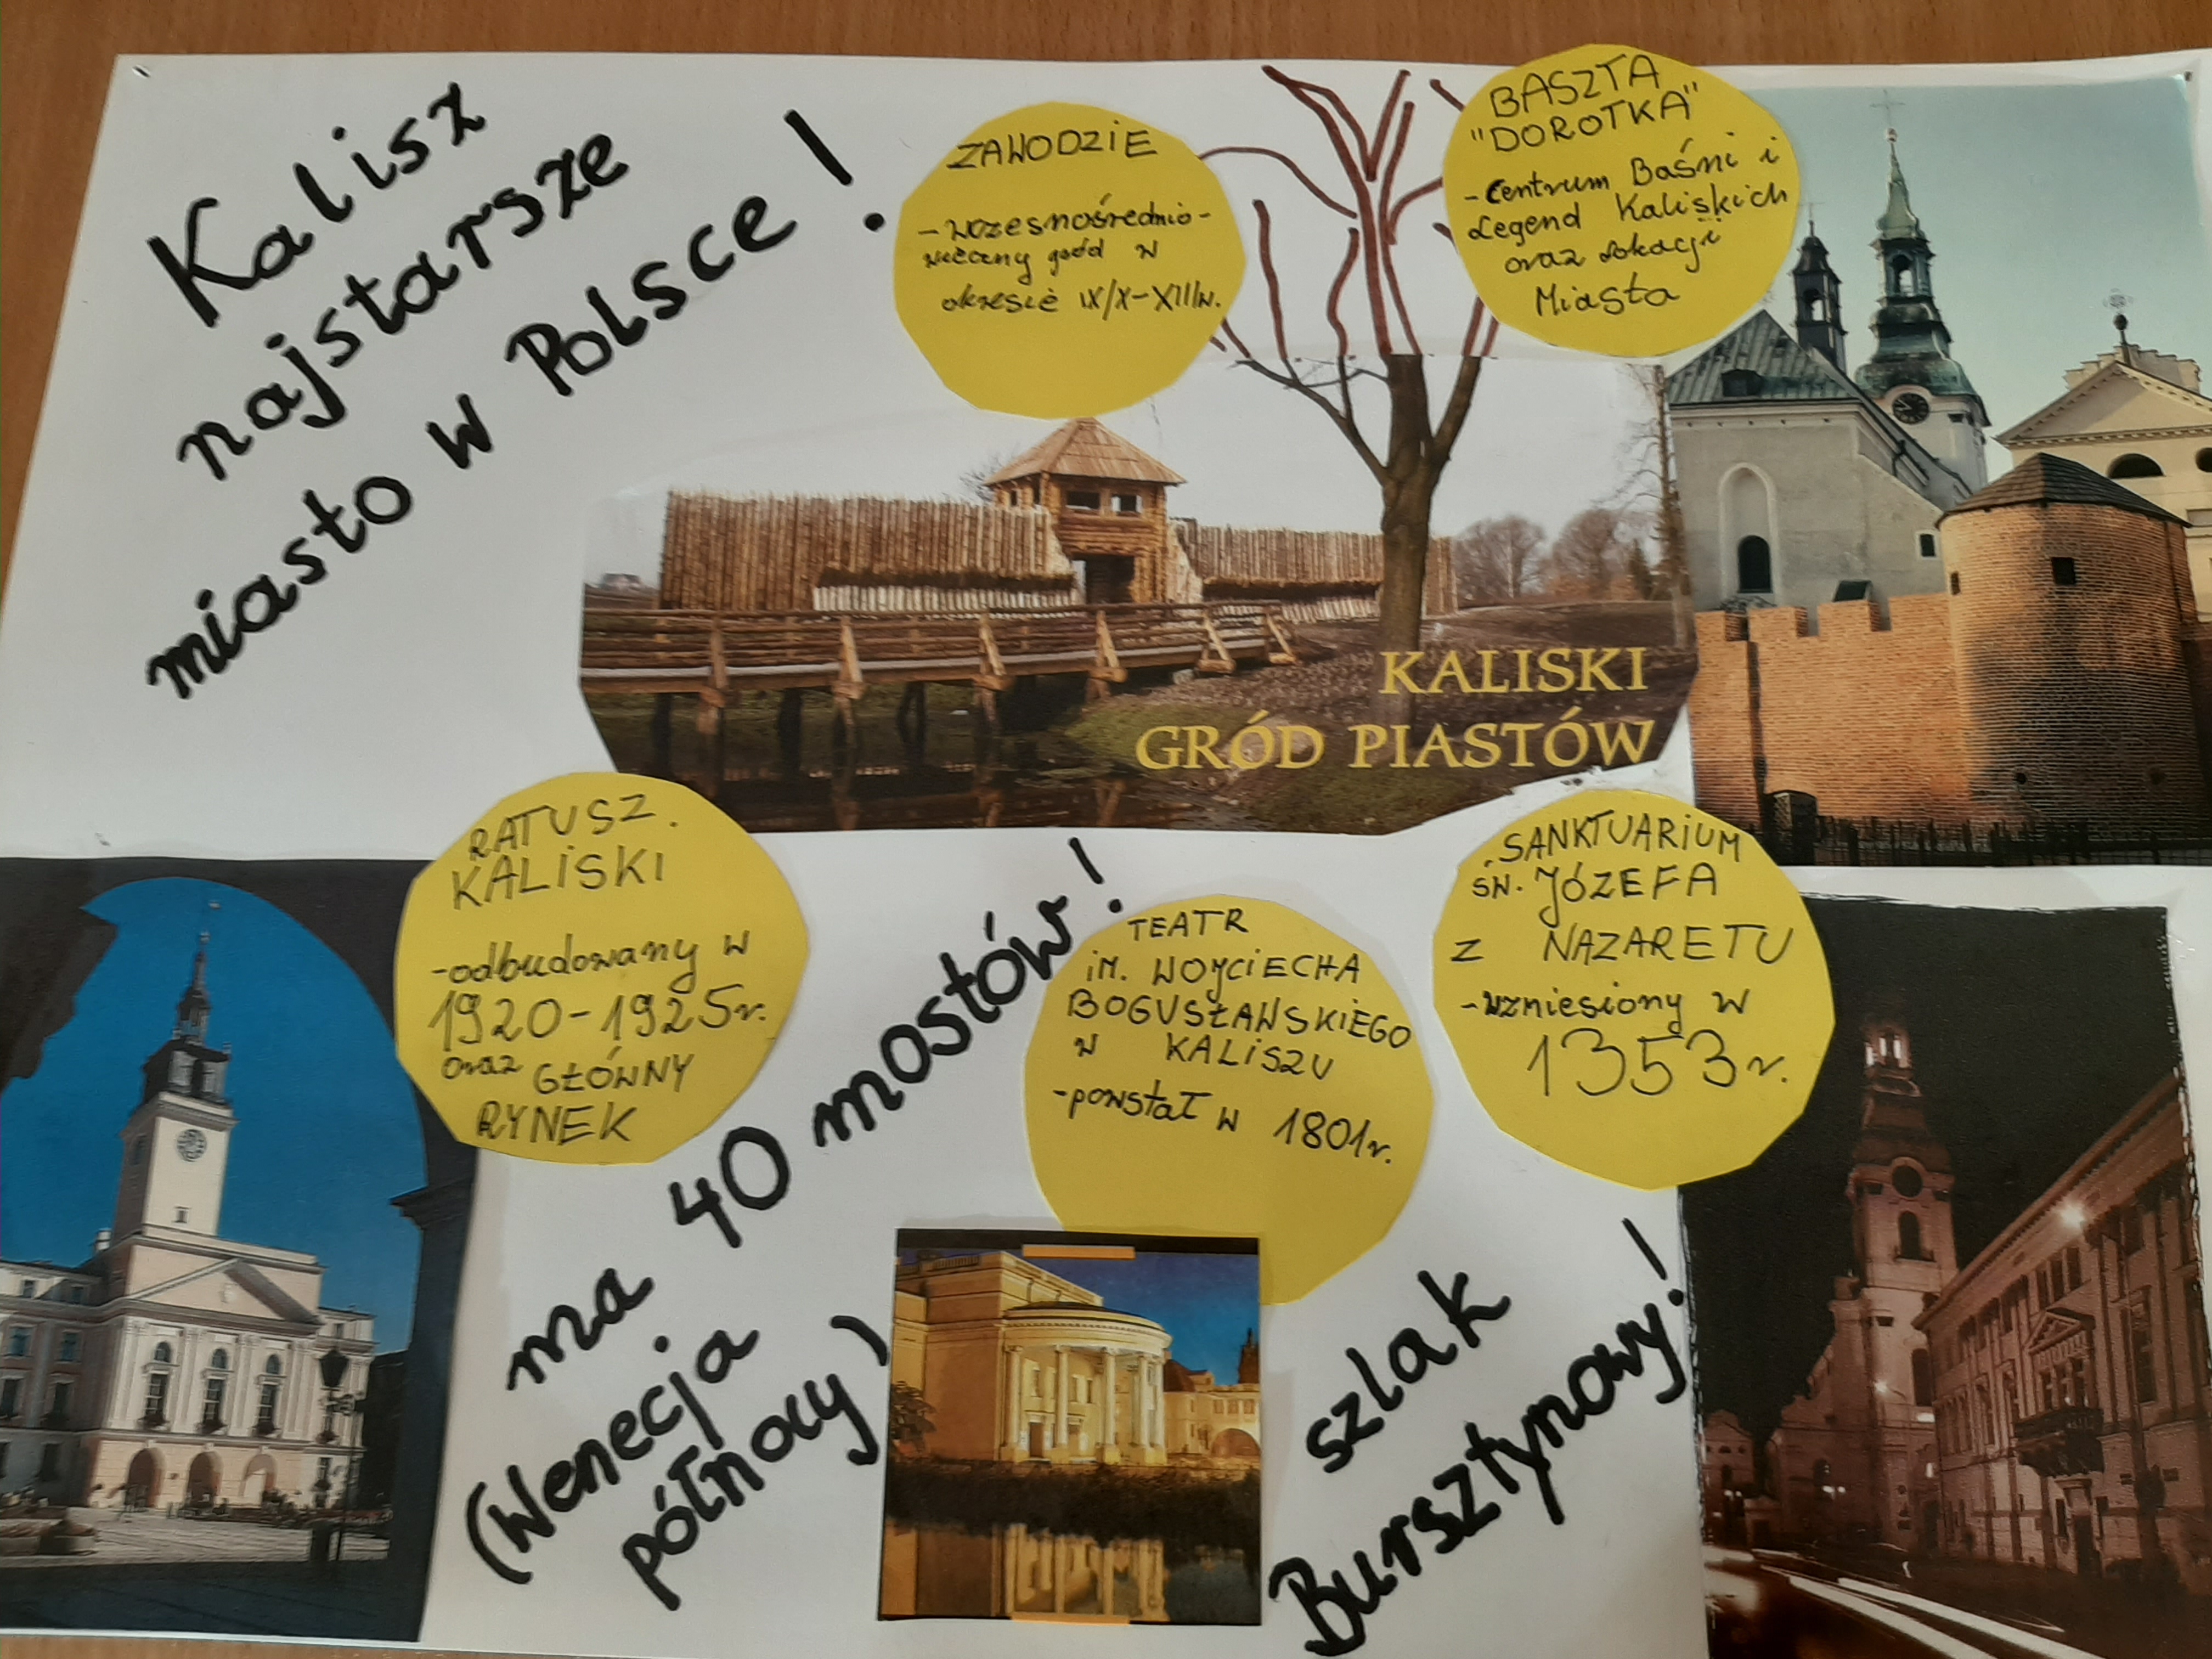 Kalisz
najstarsze
miasto w Polsce!
ZAWODZIE
- wczesnośrednio-
wieczny gród w
okresie IX/X-XIIIw.
BASZTA
"DOROTKA"
- Centrum Baśni i
Legend Kaliskich
oraz Lokacji
Miasta
KALISKI
GRÓD PIASTÓW
RATUSZ
KALISKI
- odbudowany w
1920-1925r.
oraz GŁÓWNY
RYNEK
ma 40 mostów!
(Wenecja
północy)
TEATR
iM. WOJCIECHA
BOGUSŁAWSKIEGO
W KALISZU
- powstał w 1801r.
SANKTUARIUM
ŚW. JÓZEFA
Z NAZARETU
- wzniesiony w
1353r.
szlak
Bursztynowy!